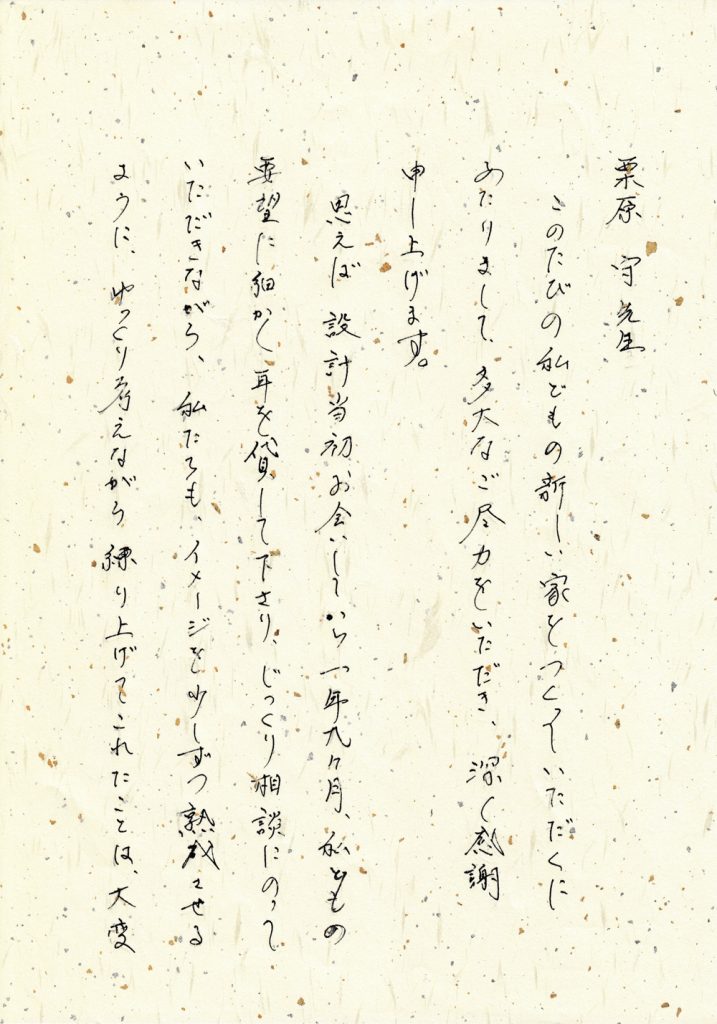 栗原 守先生
このたびの私どもの新しい家をつくっていただくに
あたりまして、多大なご尽力をいただき、深く感謝
申し上げます。
思えば 設計当初お会いしてから一年九ヶ月、私どもの
要望に細かく耳を貸して下さり、じっくり相談にのって
いただきながら、私たちも、イメージを少しずつ熟成させる
ように、ゆっくり考えながら 練り上げてこれたことは、大変